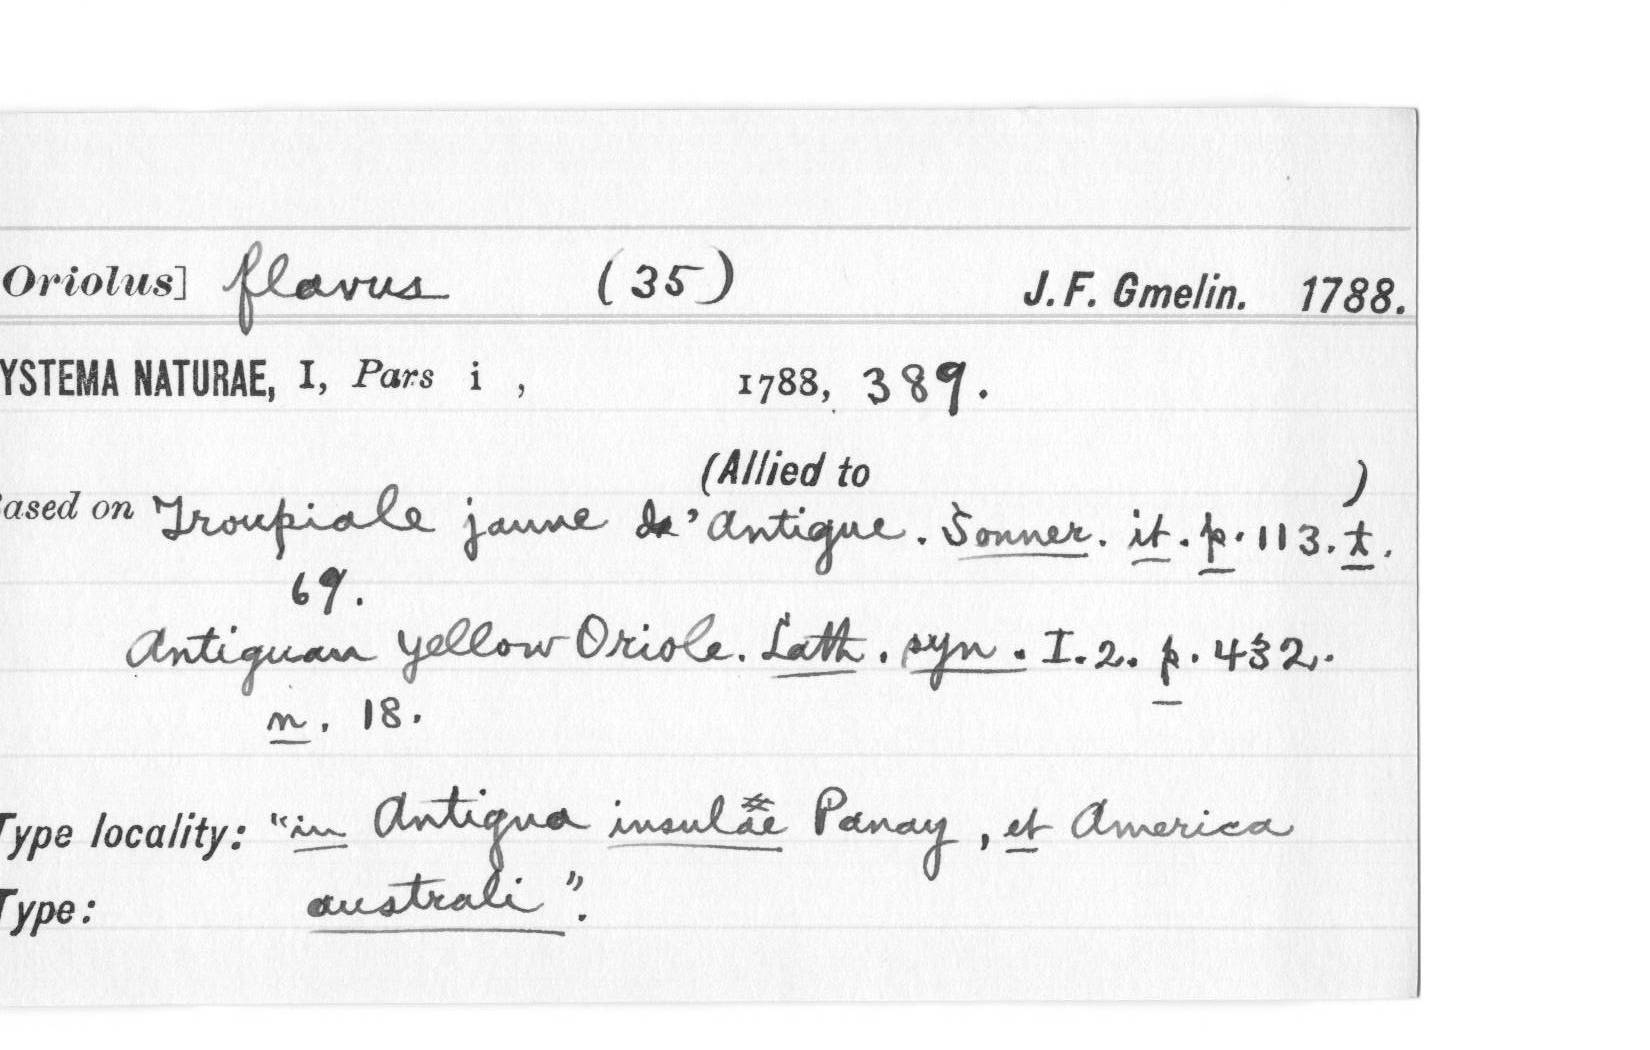 Oriolus] flavus (35) J. F. Gmelin. 1788.
YSTEMA NATURAE, I, Pars i , 1788, 389.
(Allied to )
ased on Troupiale jaune d'Antigue. Sonner. it. p. 113. t.
69.
Antiguan yellow Oriole. Lath. syn. I. 2. p. 432.
n. 18.
Type locality: "in Antigua insulae Panay, et America
Type: australi".